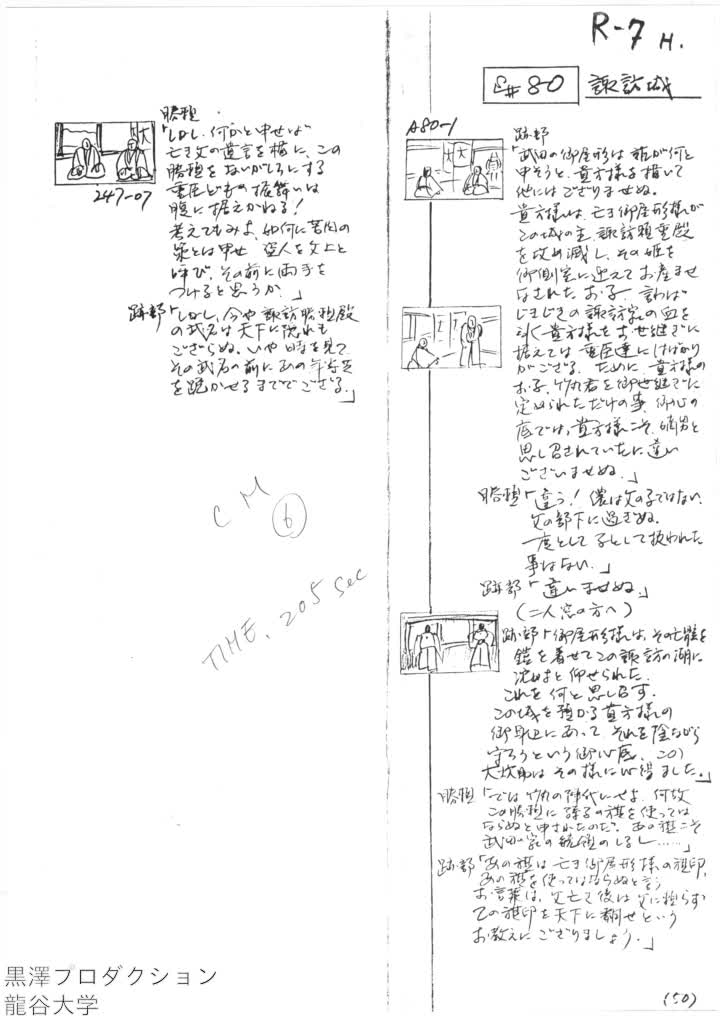 R-7 H.
S#80 諏訪城
A80-1
跡部
「武田の御屋形は誰が何と
申そうと、貴方様を措いて
他にはござりませぬ。
貴方様は、亡き御屋形様が
この城の主、諏訪頼重殿
を攻め滅し、その姫を
御側室に迎えてお産ませ
なされたお子、言わば
じきじきの諏訪家の血を
引く貴方様をお世継ぎに
据えては重臣達にはばかり
がござる。ために、貴方様の
お子、竹丸君を御世継ぎに
定められただけの事、御心の
底では、貴方様こそ、嫡男と
思し召されていたに違い
ございませぬ。」
勝頼「違う！儂は父の子ではない、
父の部下に過ぎぬ。
一度として子として扱われた
事はない。」
跡部「違いませぬ。」
(二人窓の方へ)
跡部「御屋形様は、その亡骸を
鎧を着せてこの諏訪の湖に
沈めよと仰せられた。
これを何と思し召す。
この城を預かる貴方様の
御身辺にあって、それを陰ながら
守ろうという御心底、この
大炊助はその様に心得ました。」
勝頼「では竹丸の陣代にせよ、何故
この勝頼に孫子の旗を使っては
ならぬと申されたのだ？あの旗こそ
武田家の統領のしるし……」
跡部「あの旗は亡き御屋形様の旗印、
あの旗を使ってはならぬと言う
お言葉は、父亡き後は父に頼らず
己の旗印を天下に翻せという
お教えにござりましょう。」
(50)
勝頼
「しかし、何かと申せば
亡き父の遺言を楯に、この
勝頼をないがしろにする
重臣どもの振舞いは
腹に据えかねる！
考えてもみよ、如何に苦肉の
策とは申せ、盗人を父上と
呼び、その前に両手を
つけると思うか。」
247-07
跡部「しかし、今や諏訪勝頼殿
の武名は天下に隠れも
ござらぬ、いや時を見て
その武名の前にあの年寄共
を跪かせるまででござる。」
CM
6
TIME. 205 sec
黒澤プロダクション
龍谷大学